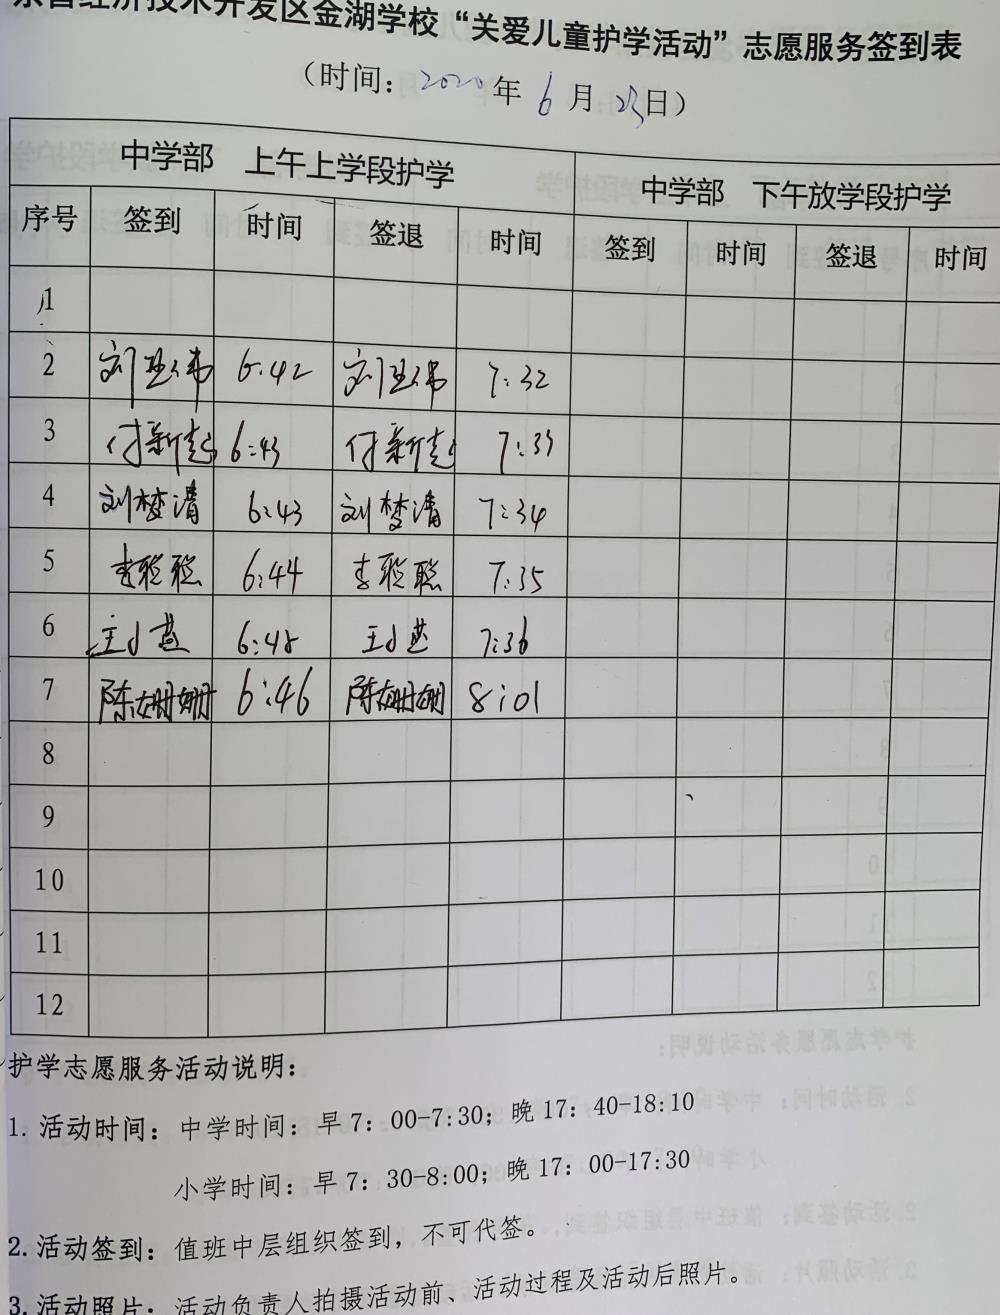 经济技术开发区金湖学校“关爱儿童护学活动”志愿服务签到表
（时间：2020年 6 月 23日）
中学部 上午上学段护学 中学部 下午放学段护学
序号 签到 时间 签退 时间 签到 时间 签退 时间
1
2 6:42 7:32
3 付新起 6:43 付新起 7:33
4 刘梦清 6:43 刘梦清 7:34
5 李聪聪 6:44 李聪聪 7:35
6 王小燕 6:45 王小燕 7:36
7 陈姗姗 6:46 陈姗姗 8:01
8
9
10
11
12
护学志愿服务活动说明：
1. 活动时间：中学时间：早7：00-7:30；晚17：40-18:10
小学时间：早7：30-8:00；晚17：00-17:30
2. 活动签到：值班中层组织签到，不可代签。
3. 活动照片：活动负责人拍摄活动前、活动过程及活动后照片。